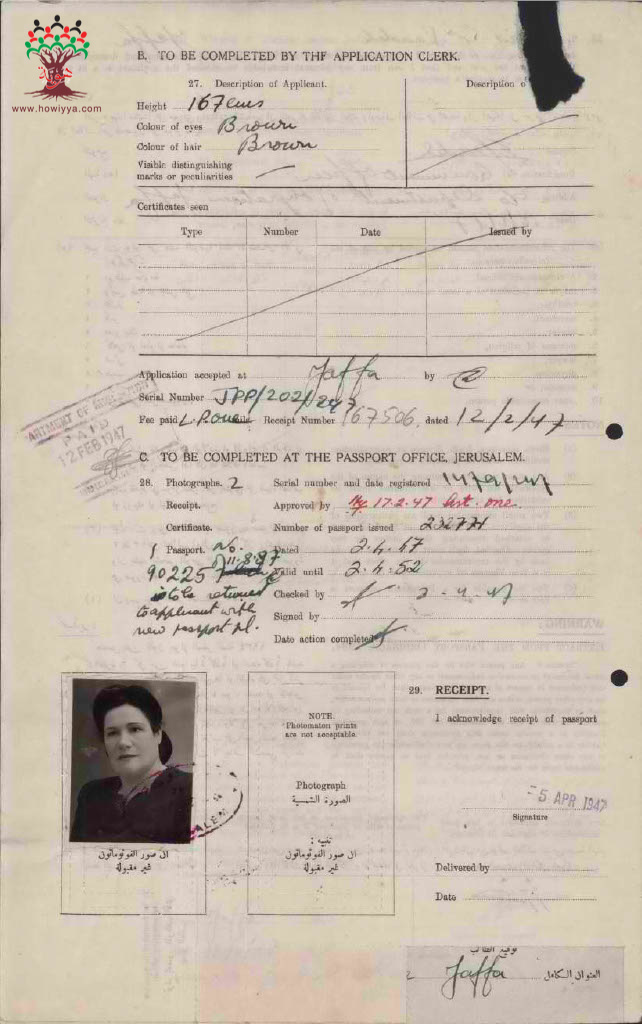 www.howiyya.com
B. TO BE COMPLETED BY THE APPLICATION CLERK.
27. Description of Applicant.
Description o
Height 167 cms
Colour of eyes Brown
Colour of hair Brown
Visible distinguishing
marks or peculiarities —
Certificates seen
Type Number Date Issued by
Application accepted at Jaffa by
Serial Number JPP/202/247
Fee paid Receipt Number 167506, dated 12/2/47
DEPARTMENT OF
PAID
12 FEB 1947
C. TO BE COMPLETED AT THE PASSPORT OFFICE, JERUSALEM.
28. Photographs. 2 Serial number and date registered
Receipt. Approved by 17.2.47
Certificate. Number of passport issued
1 Passport. No. Dated 2.4.47
90225 11.8.37 Valid until 2.4.52
is to be returned Checked by 2.4.47
to applicant with Signed by
new passport pl. Date action completed
29. RECEIPT.
I acknowledge receipt of passport
-5 APR 1947
Signature
Delivered by
Date
ALEM
الى صور الفوتوماتون
غير مقبولة
NOTE.
Photomaton prints
are not acceptable.
Photograph
الصورة الشمسية
تنبيه :
الى صور الفوتوماتون
غير مقبولة
توقيع الطالب
Jaffa العنوان الكامل